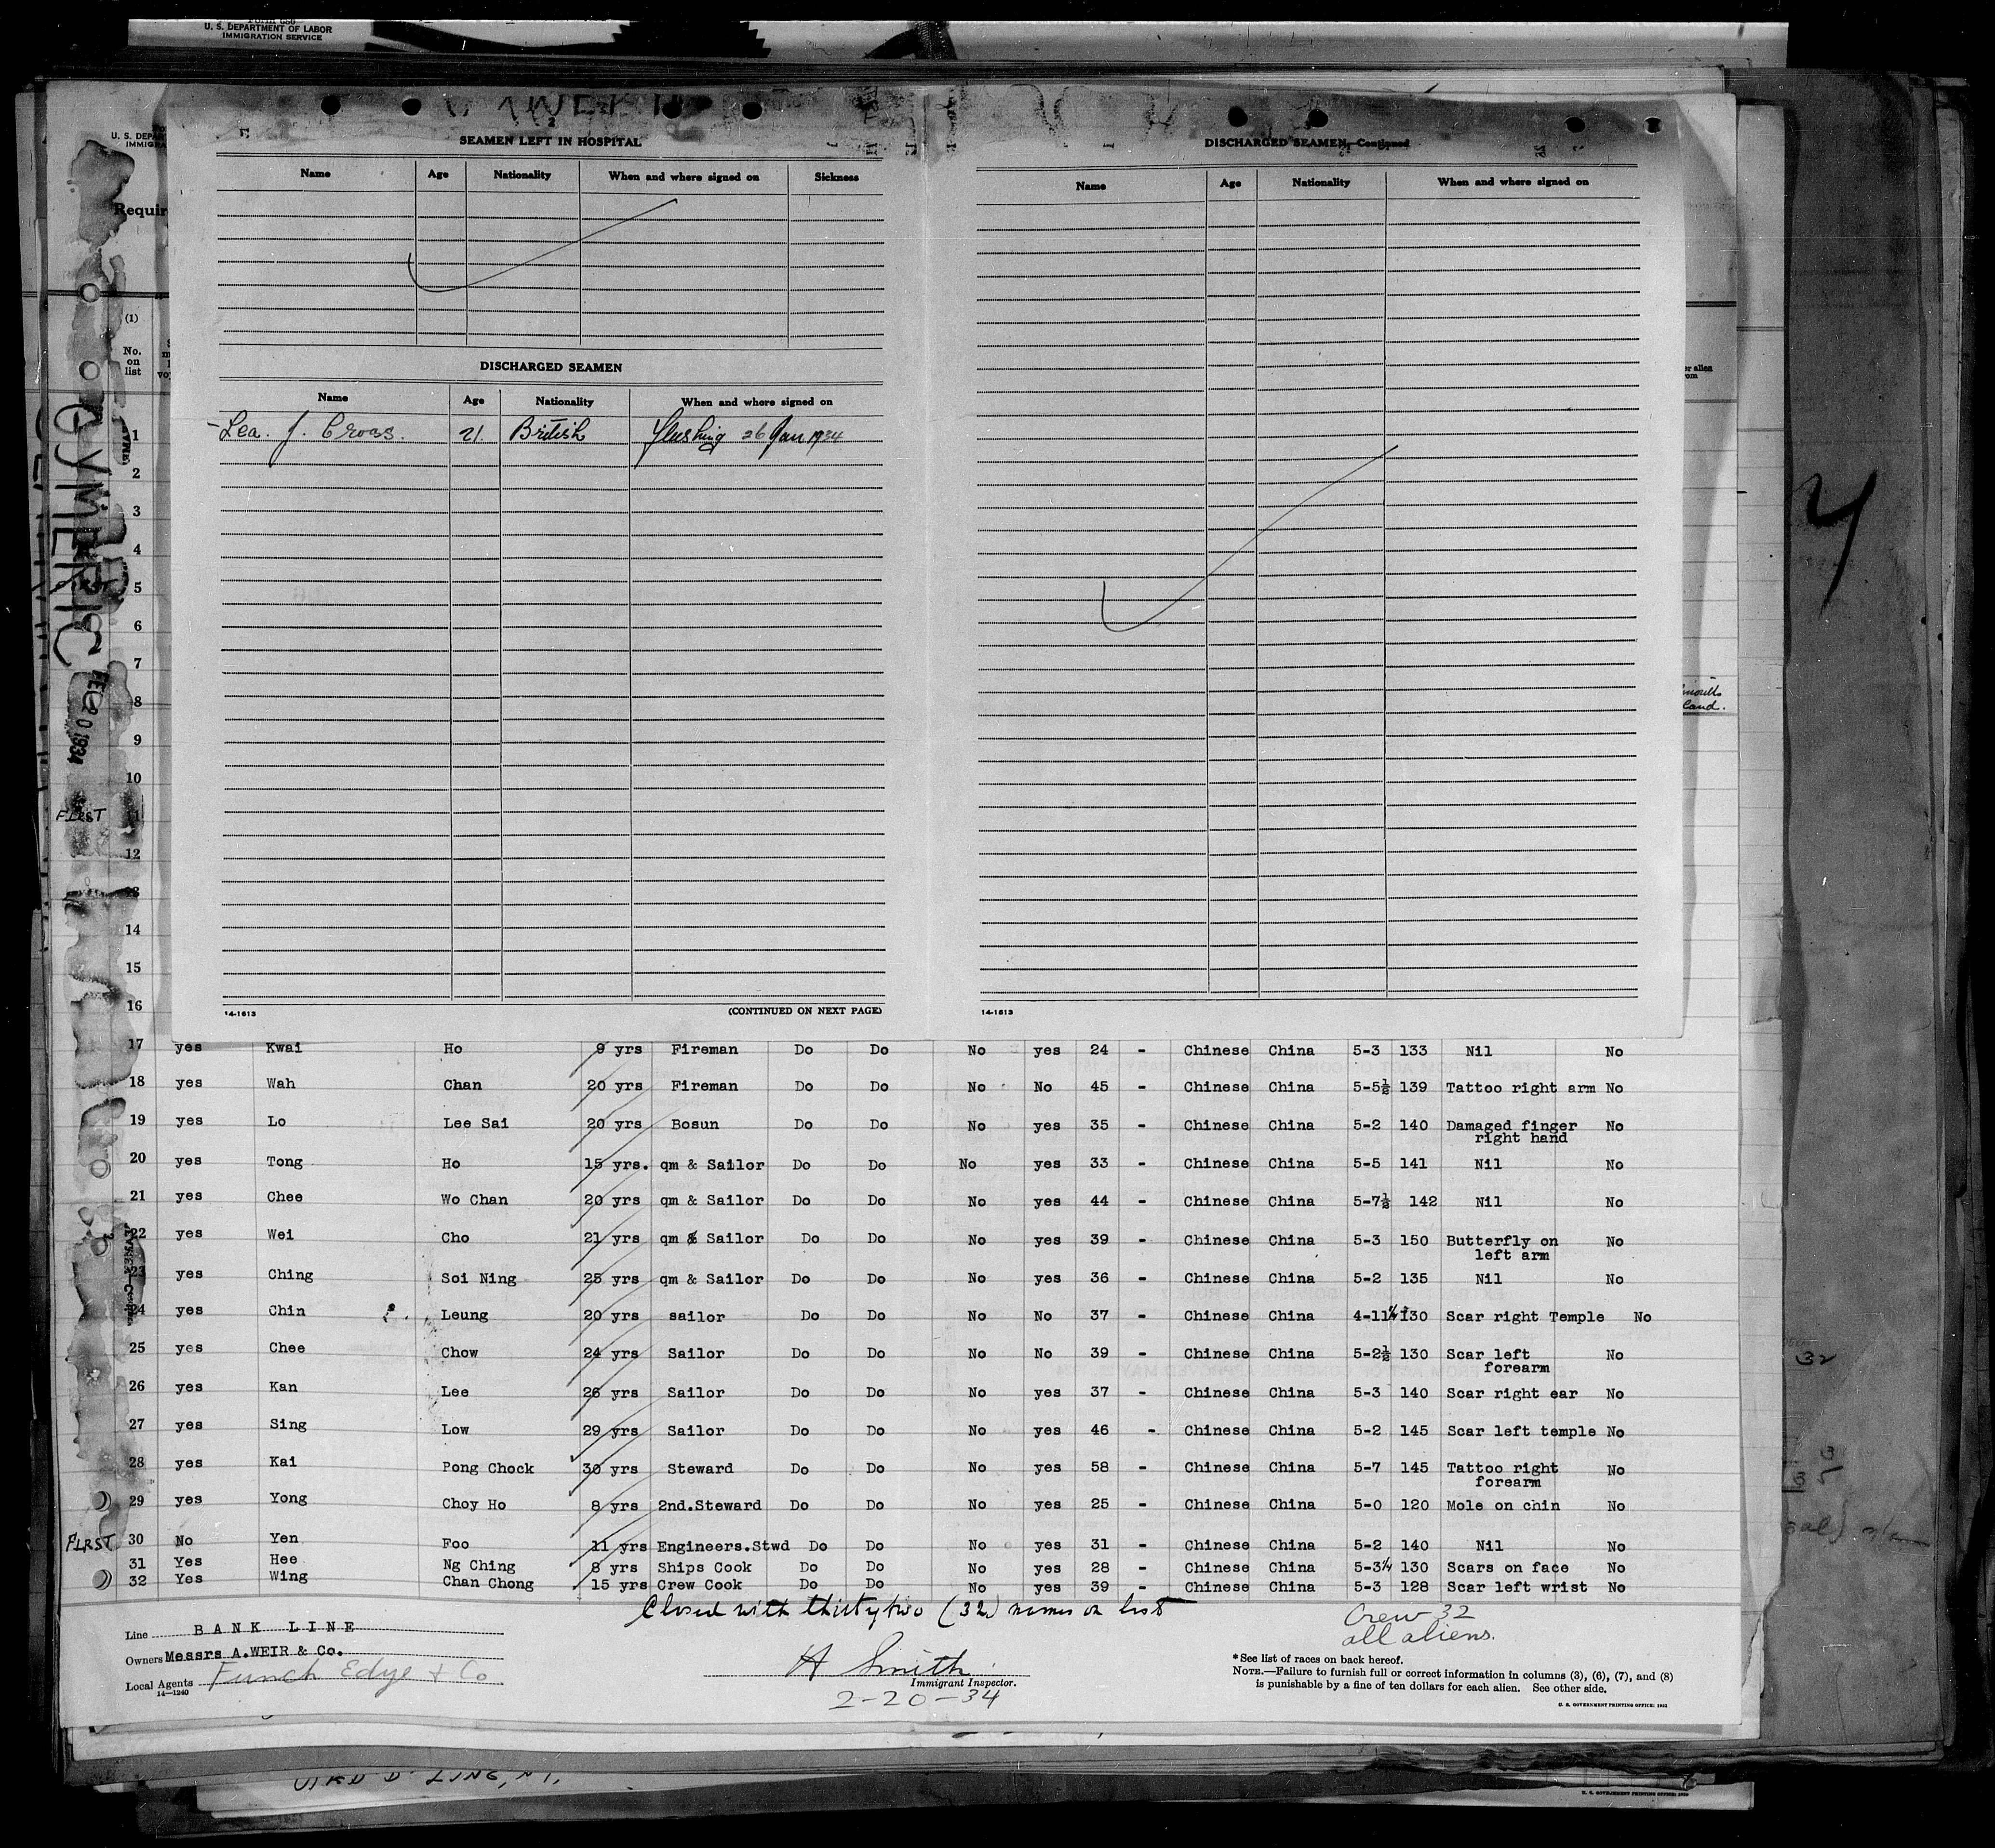 Form 680
U. S. DEPARTMENT OF LABOR
IMMIGRATION SERVICE
SEAMEN LEFT IN HOSPITAL
Name Age Nationality When and where signed on Sickness
DISCHARGED SEAMEN
Name Age Nationality When and where signed on
Lea. J. Cross. 21. British Flushing 26 Jan 1934
14-1613 (CONTINUED ON NEXT PAGE)
DISCHARGED SEAMEN—Contiuned
Name Age Nationality When and where signed on
14-1613
U. S. DEPAR
IMMIGRA
Requir
(1)
No.
on
list
1
2
3
4
5
6
7
8
9
10
11
12
13
14
15
16
FIRST
FEB 20 1934
17 yes Kwai Ho 9 yrs Fireman Do Do No yes 24 - Chinese China 5-3 133 Nil No
18 yes Wah Chan 20 yrs Fireman Do Do No No 45 - Chinese China 5-5½ 139 Tattoo right arm No
19 yes Lo Lee Sai 20 yrs Bosun Do Do No yes 35 - Chinese China 5-2 140 Damaged finger No
right hand
20 yes Tong Ho 15 yrs. qm & Sailor Do Do No yes 33 - Chinese China 5-5 141 Nil No
21 yes Chee Wo Chan 20 yrs qm & Sailor Do Do No yes 44 - Chinese China 5-7½ 142 Nil No
22 yes Wei Cho 21 yrs qm & Sailor Do Do No yes 39 - Chinese China 5-3 150 Butterfly on No
left arm
23 yes Ching Soi Ning 25 yrs qm & Sailor Do Do No yes 36 - Chinese China 5-2 135 Nil No
24 yes Chin Leung 20 yrs sailor Do Do No No 37 - Chinese China 4-11¼ 130 Scar right Temple No
25 yes Chee Chow 24 yrs Sailor Do Do No No 39 - Chinese China 5-2½ 130 Scar left No
forearm
26 yes Kan Lee 26 yrs Sailor Do Do No yes 37 - Chinese China 5-3 140 Scar right ear No
27 yes Sing Low 29 yrs Sailor Do Do No yes 46 - Chinese China 5-2 145 Scar left temple No
28 yes Kai Pong Chock 30 yrs Steward Do Do No yes 58 - Chinese China 5-7 145 Tattoo right No
forearm
29 yes Yong Choy Ho 8 yrs 2nd.Steward Do Do No yes 25 - Chinese China 5-0 120 Mole on chin No
FIRST 30 No Yen Foo 11 yrs Engineers.Stwd Do Do No yes 31 - Chinese China 5-2 140 Nil No
31 Yes Hee Ng Ching 8 yrs Ships Cook Do Do No yes 28 - Chinese China 5-3¼ 130 Scars on face No
32 Yes Wing Chan Chong 15 yrs Crew Cook Do Do No yes 39 - Chinese China 5-3 128 Scar left wrist No
Closed with thirtytwo (32) names on list
Crew 32
all aliens.
Line BANK LINE
Owners Messrs A.WEIR & Co.
Local Agents Funch Edye & Co
14—1240
H Smith
Immigrant Inspector.
2-20-34
*See list of races on back hereof.
NOTE.—Failure to furnish full or correct information in columns (3), (6), (7), and (8)
is punishable by a fine of ten dollars for each alien. See other side.
U. S. GOVERNMENT PRINTING OFFICE: 1932
32